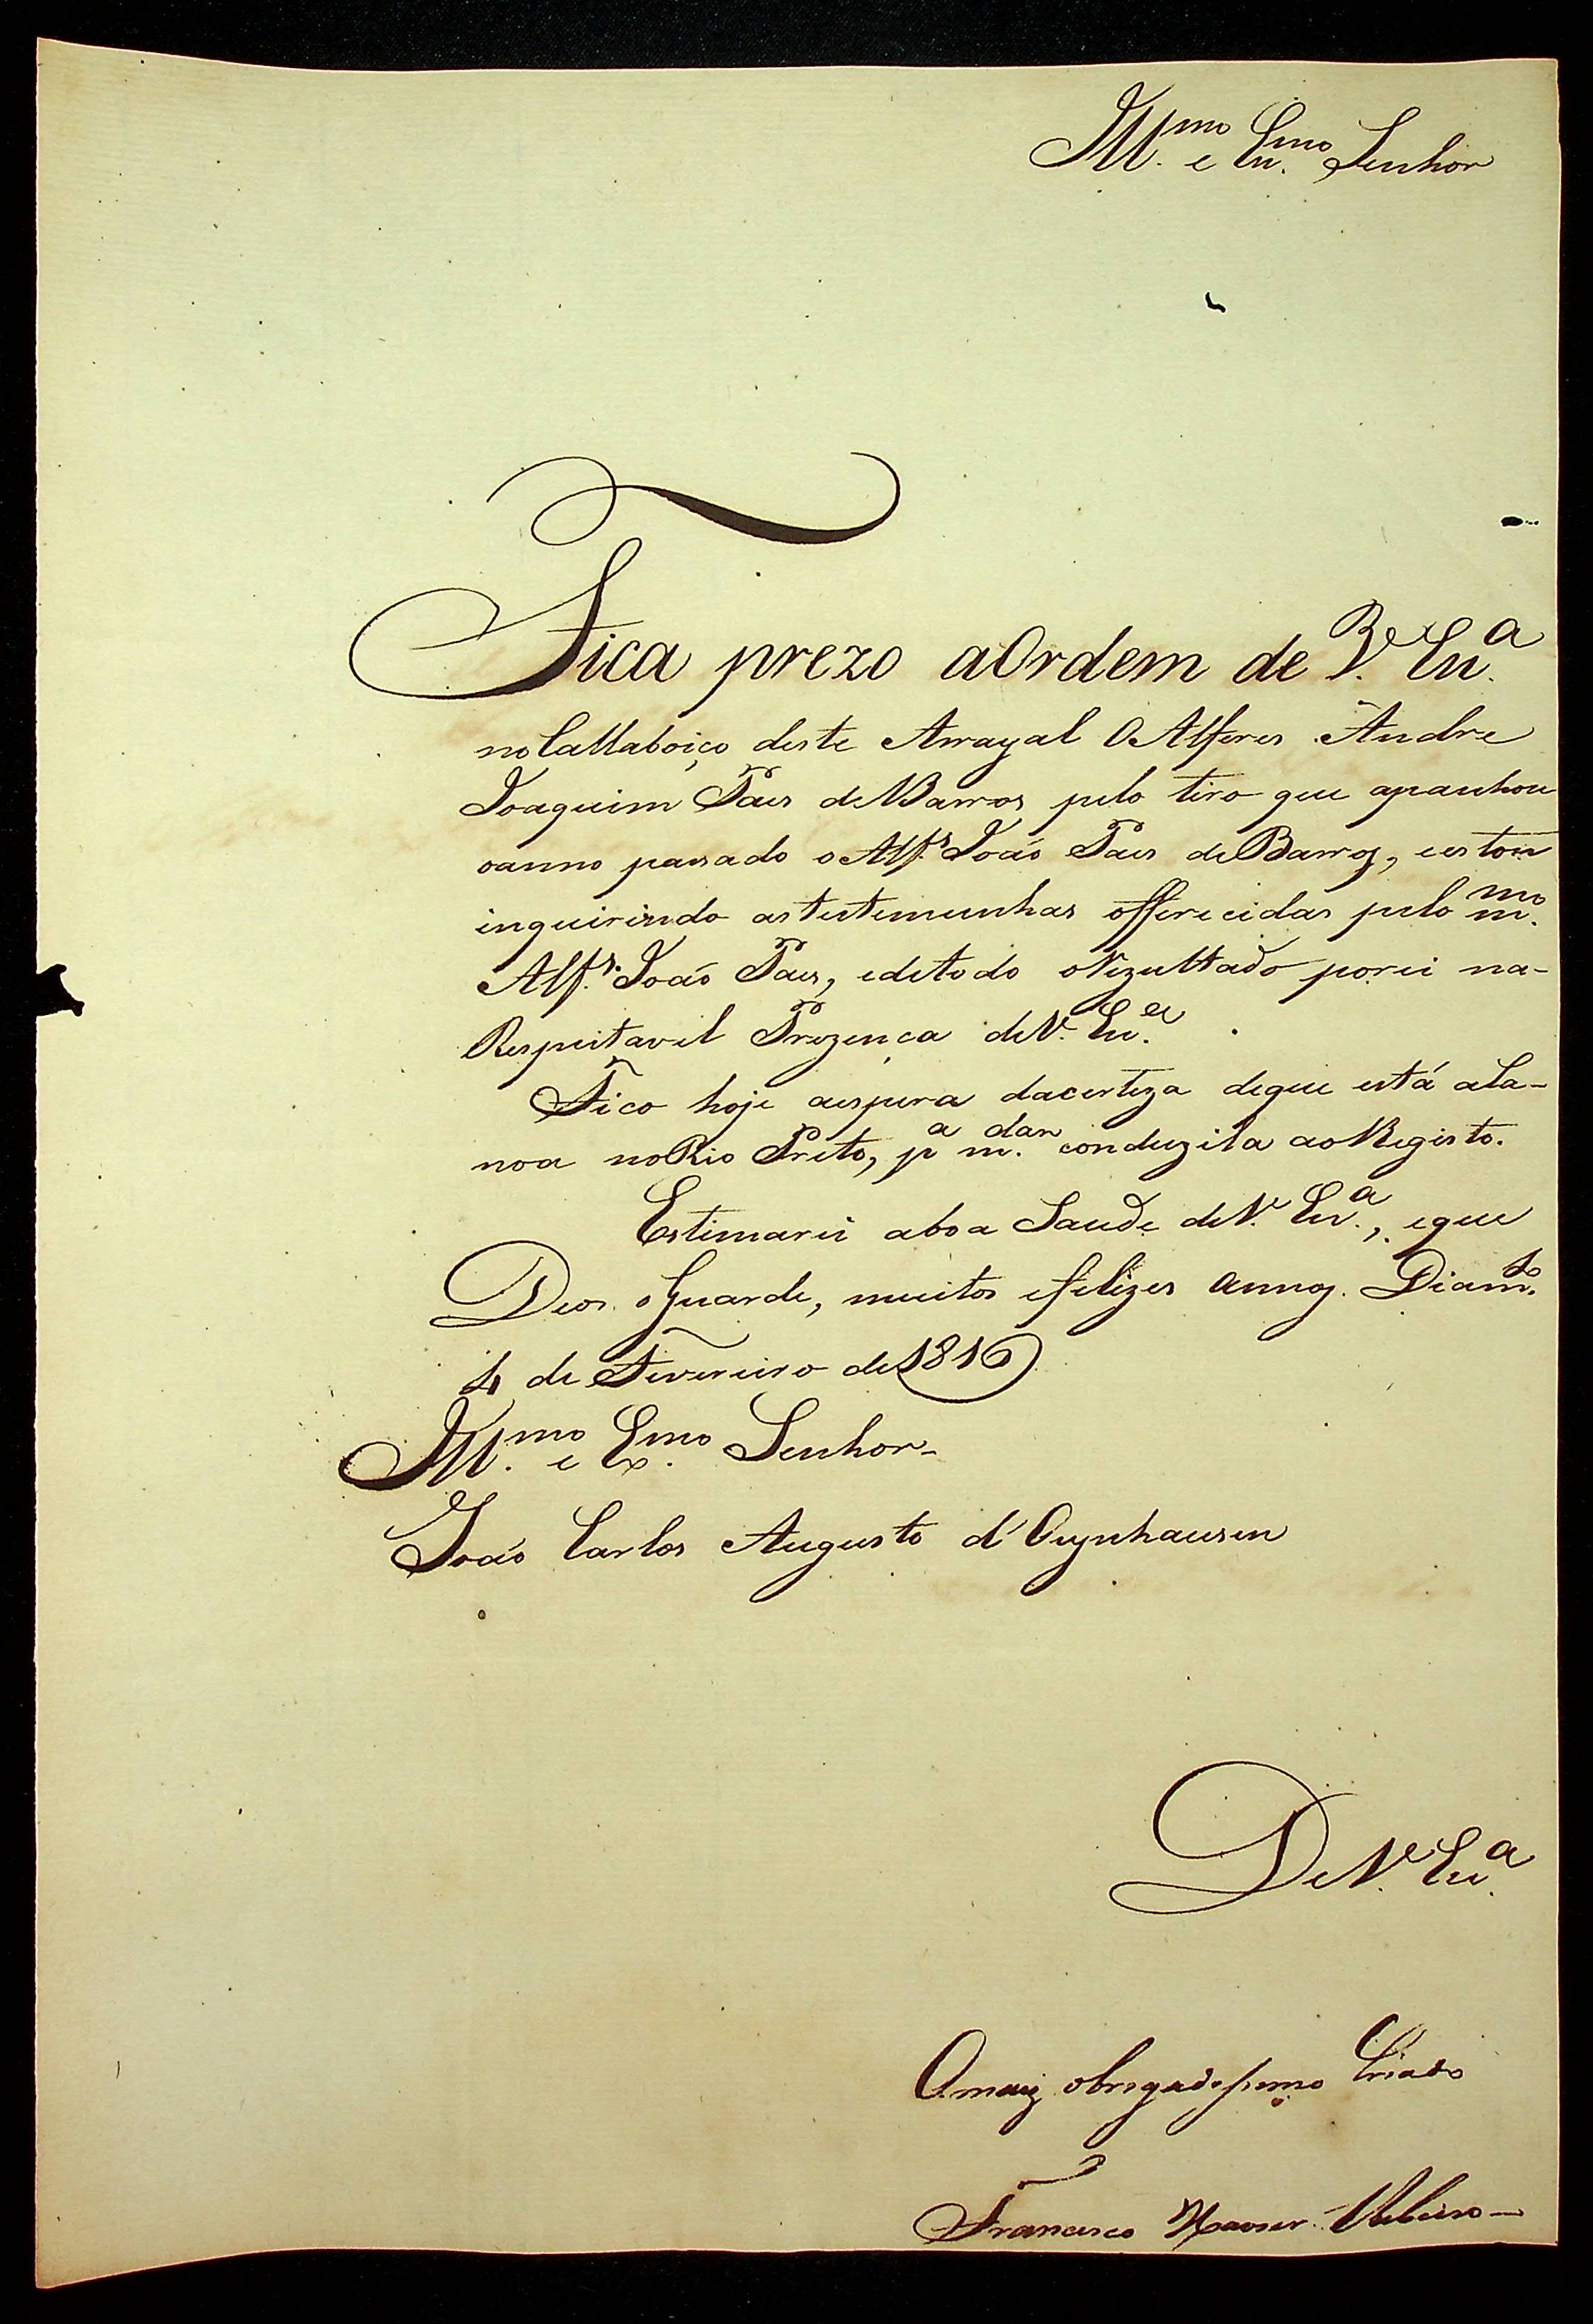 Ill.mo e Ex.mo Senhor
Fica prezo aOrdem de V.e Ex.a
no Callaboiço deste Arrayal O Alferes Andre
Joaquim Paes de Barros, pelo tiro que apanhou
oanno pasado o Alf.s João Paes de Barros, eestou
inquirindo astestemunhas offerecidas pelo m.mo
Alf.s João Paes, edetodo oRezultado porei na-
Respeitavel Prezença deV.e Ex.a
Fico hoje aespera dacerteza deque está aCa-
noa noRio Preto, p.a m.dar conduzila aoRegisto.
Estimarei aboa Saude deV.e Ex.a, eque
Deos oGuarde, muitos efelizes annos. Diam.to
4 de Fevereiro de1816
Ill.mo e Ex.mo Senhor-
João Carlos Augusto d'Oeynhausen
DeV.e Ex.a
Omaiz obrigadissimo Criado
Francisco Xavier Ribeiro-